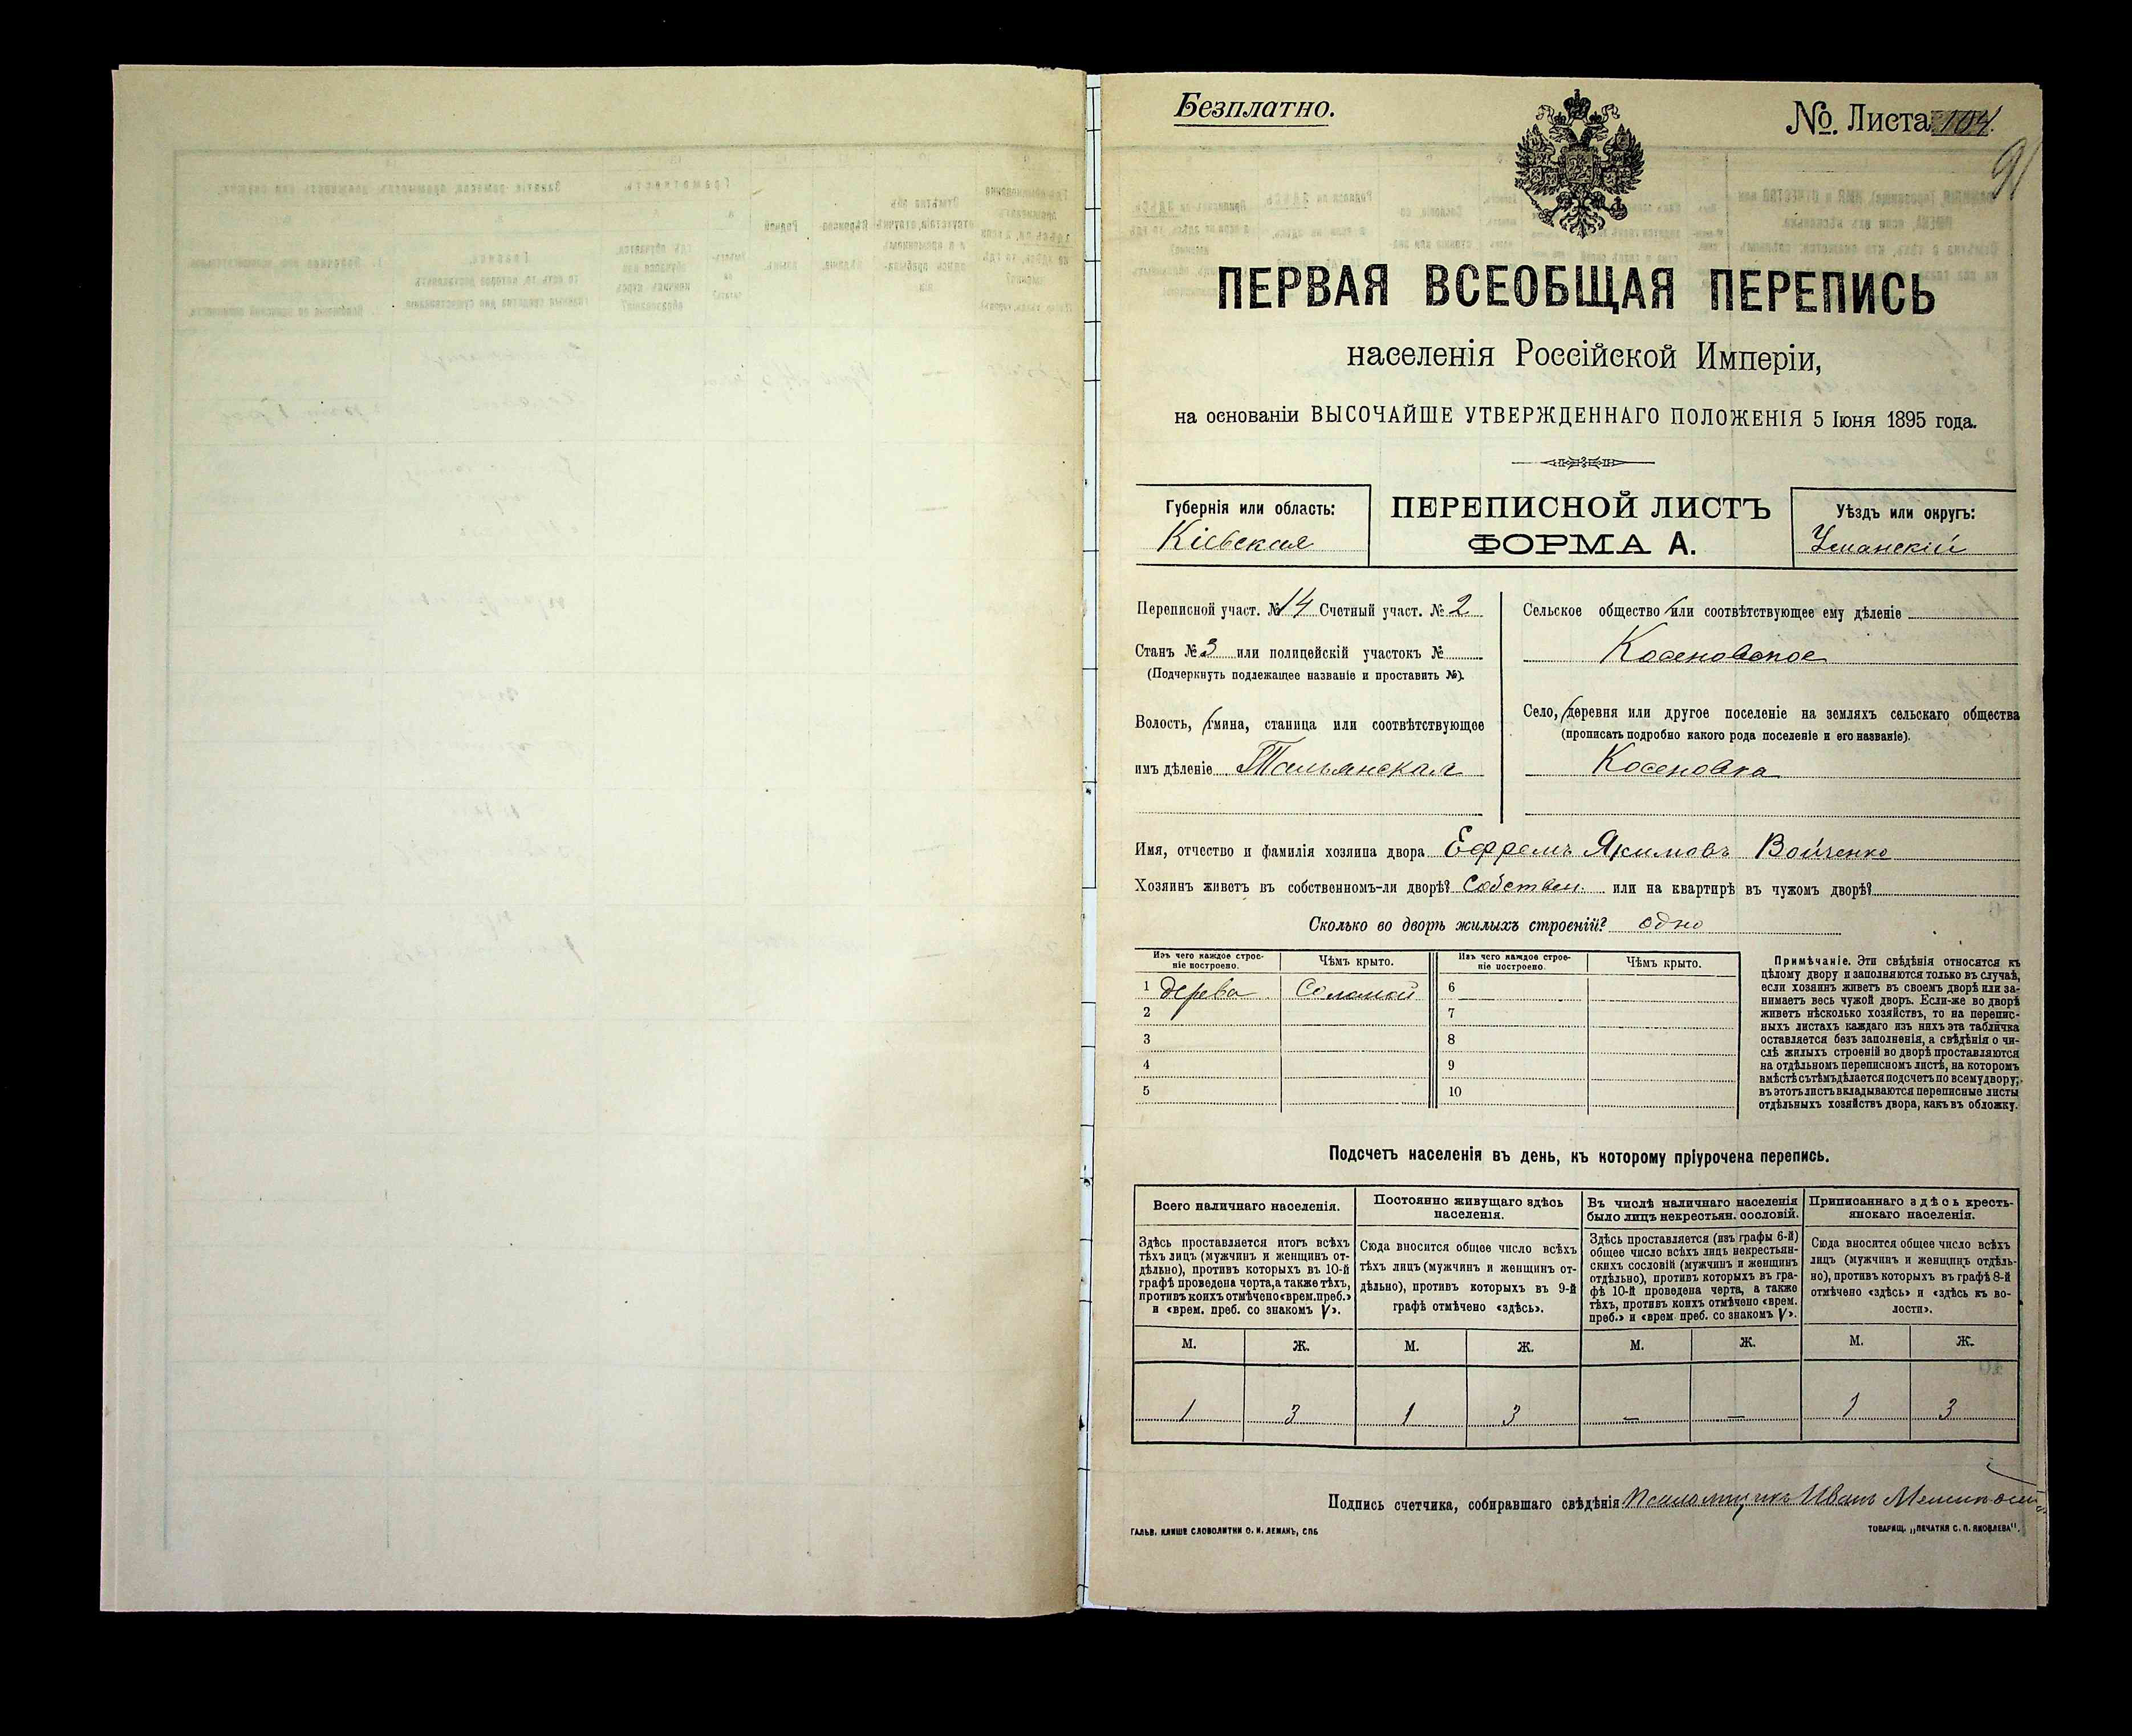 Безплатно.
№. Листа 104.
91
ПЕРВАЯ ВСЕОБЩАЯ ПЕРЕПИСЬ
населенія Россійской Имперіи,
на основаніи ВЫСОЧАЙШЕ УТВЕРЖДЕННАГО ПОЛОЖЕНІЯ 5 Іюня 1895 года.
Губернія или область:
Кіевская
ПЕРЕПИСНОЙ ЛИСТЪ
ФОРМА А.
Уѣздъ или округъ:
Уманскій
Переписной участ. № 14 Счетный участ. № 2
Станъ № 3 или полицейскій участокъ №
(Подчеркнуть подлежащее названіе и проставить №).
Волость, гмина, станица или соотвѣтствующее
имъ дѣленіе Тальянская
Сельское общество или соотвѣтствующее ему дѣленіе
Косеновское
Село, деревня или другое поселеніе на земляхъ сельскаго общества
(прописать подробно какого рода поселеніе и его названіе).
Косеновка
Имя, отчество и фамилія хозяина двора Ефремъ Якимовъ Войченко
Хозяинъ живетъ въ собственномъ-ли дворѣ? Собствен. или на квартирѣ въ чужомъ дворѣ?
Сколько во дворѣ жилыхъ строеній? одно
Изъ чего каждое строеніе построено. Чѣмъ крыто. Изъ чего каждое строеніе построено. Чѣмъ крыто.
1 дерева Соломой 6
2 7
3 8
4 9
5 10
Примѣчаніе. Эти свѣдѣнія относятся къ
цѣлому двору и заполняются только въ случаѣ,
если хозяинъ живетъ въ своемъ дворѣ или за-
нимаетъ весь чужой дворъ. Если-же во дворѣ
живетъ нѣсколько хозяйствъ, то на перепис-
ныхъ листахъ каждаго изъ нихъ эта табличка
оставляется безъ заполненія, а свѣдѣнія о чи-
слѣ жилыхъ строеній во дворѣ проставляются
на отдѣльномъ переписномъ листѣ, на которомъ
вмѣстѣ съ тѣмъ дѣлается подсчетъ по всему двору;
въ этотъ листъ вкладываются переписные листы
отдѣльныхъ хозяйствъ двора, какъ въ обложку.
Подсчетъ населенія въ день, къ которому пріурочена перепись.
Всего наличнаго населенія.
Здѣсь проставляется итогъ всѣхъ
тѣхъ лицъ (мужчинъ и женщинъ от-
дѣльно), противъ которыхъ въ 10-й
графѣ проведена черта, а также тѣхъ,
противъ коихъ отмѣчено «врем. преб.»
и «врем. преб. со знакомъ V».
Постоянно живущаго здѣсь
населенія.
Сюда вносится общее число всѣхъ
тѣхъ лицъ (мужчинъ и женщинъ от-
дѣльно), противъ которыхъ въ 9-й
графѣ отмѣчено «здѣсь».
Въ числѣ наличнаго населенія
было лицъ некрестьян. сословій.
Здѣсь проставляется (изъ графы 6-й)
общее число всѣхъ лицъ некрестьян-
скихъ сословій (мужчинъ и женщинъ
отдѣльно), противъ которыхъ въ гра-
фѣ 10-й проведена черта, а также
тѣхъ, противъ коихъ отмѣчено «врем.
преб.» и «врем. преб. со знакомъ V».
Приписаннаго здѣсь кресть-
янскаго населенія.
Сюда вносится общее число всѣхъ
лицъ (мужчинъ и женщинъ отдѣль-
но), противъ которыхъ въ графѣ 8-й
отмѣчено «здѣсь» и «здѣсь къ во-
лости».
М. Ж. М. Ж. М. Ж. М. Ж.
1 3 1 3 — — 1 3
Подпись счетчика, собиравшаго свѣдѣнія Псаломщикъ Иванъ
ГАЛЬВ. КЛИШЕ СЛОВОЛИТНИ О. И. ЛЕМАНЪ, СПБ
ТОВАРИЩ. „ПЕЧАТНЯ С. П. ЯКОВЛЕВА".